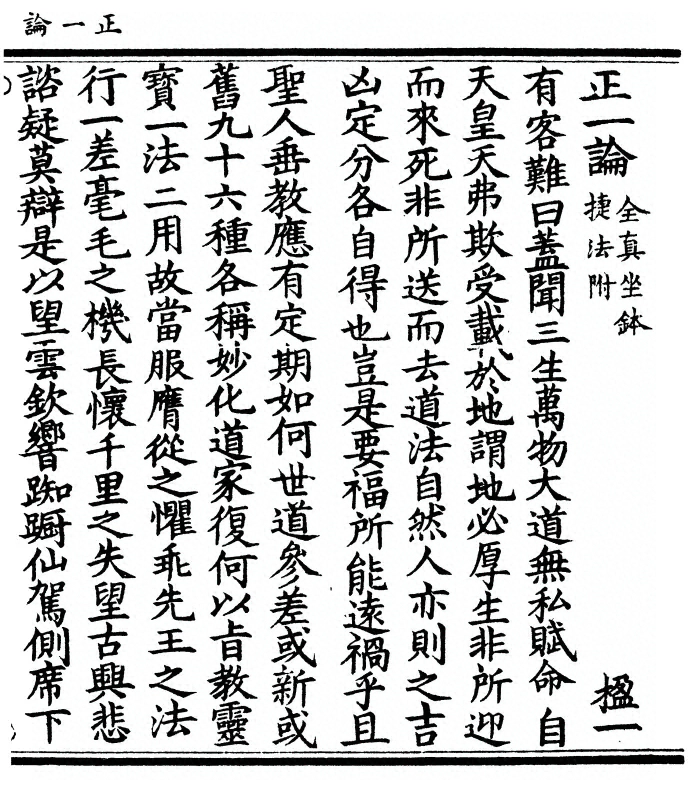 正一論
正一論 全真坐鉢捷法附 楹一
有客難曰蓋聞三生萬物大道無私賦命自
天皇天弗欺受載於地謂地必厚生非所迎
而來死非所送而去道法自然人亦則之吉
凶定分各自得也豈是要福所能遠禍乎且
聖人垂教應有定期如何世道參差或新或
舊九十六種各稱妙化道家復何以旨教靈
寶一法二用故當服膺從之懼乖先王之法
行一差毫毛之機長懷千里之失望古興悲
諮疑莫辯是以望雲欽響踟蹰仙駕側席下